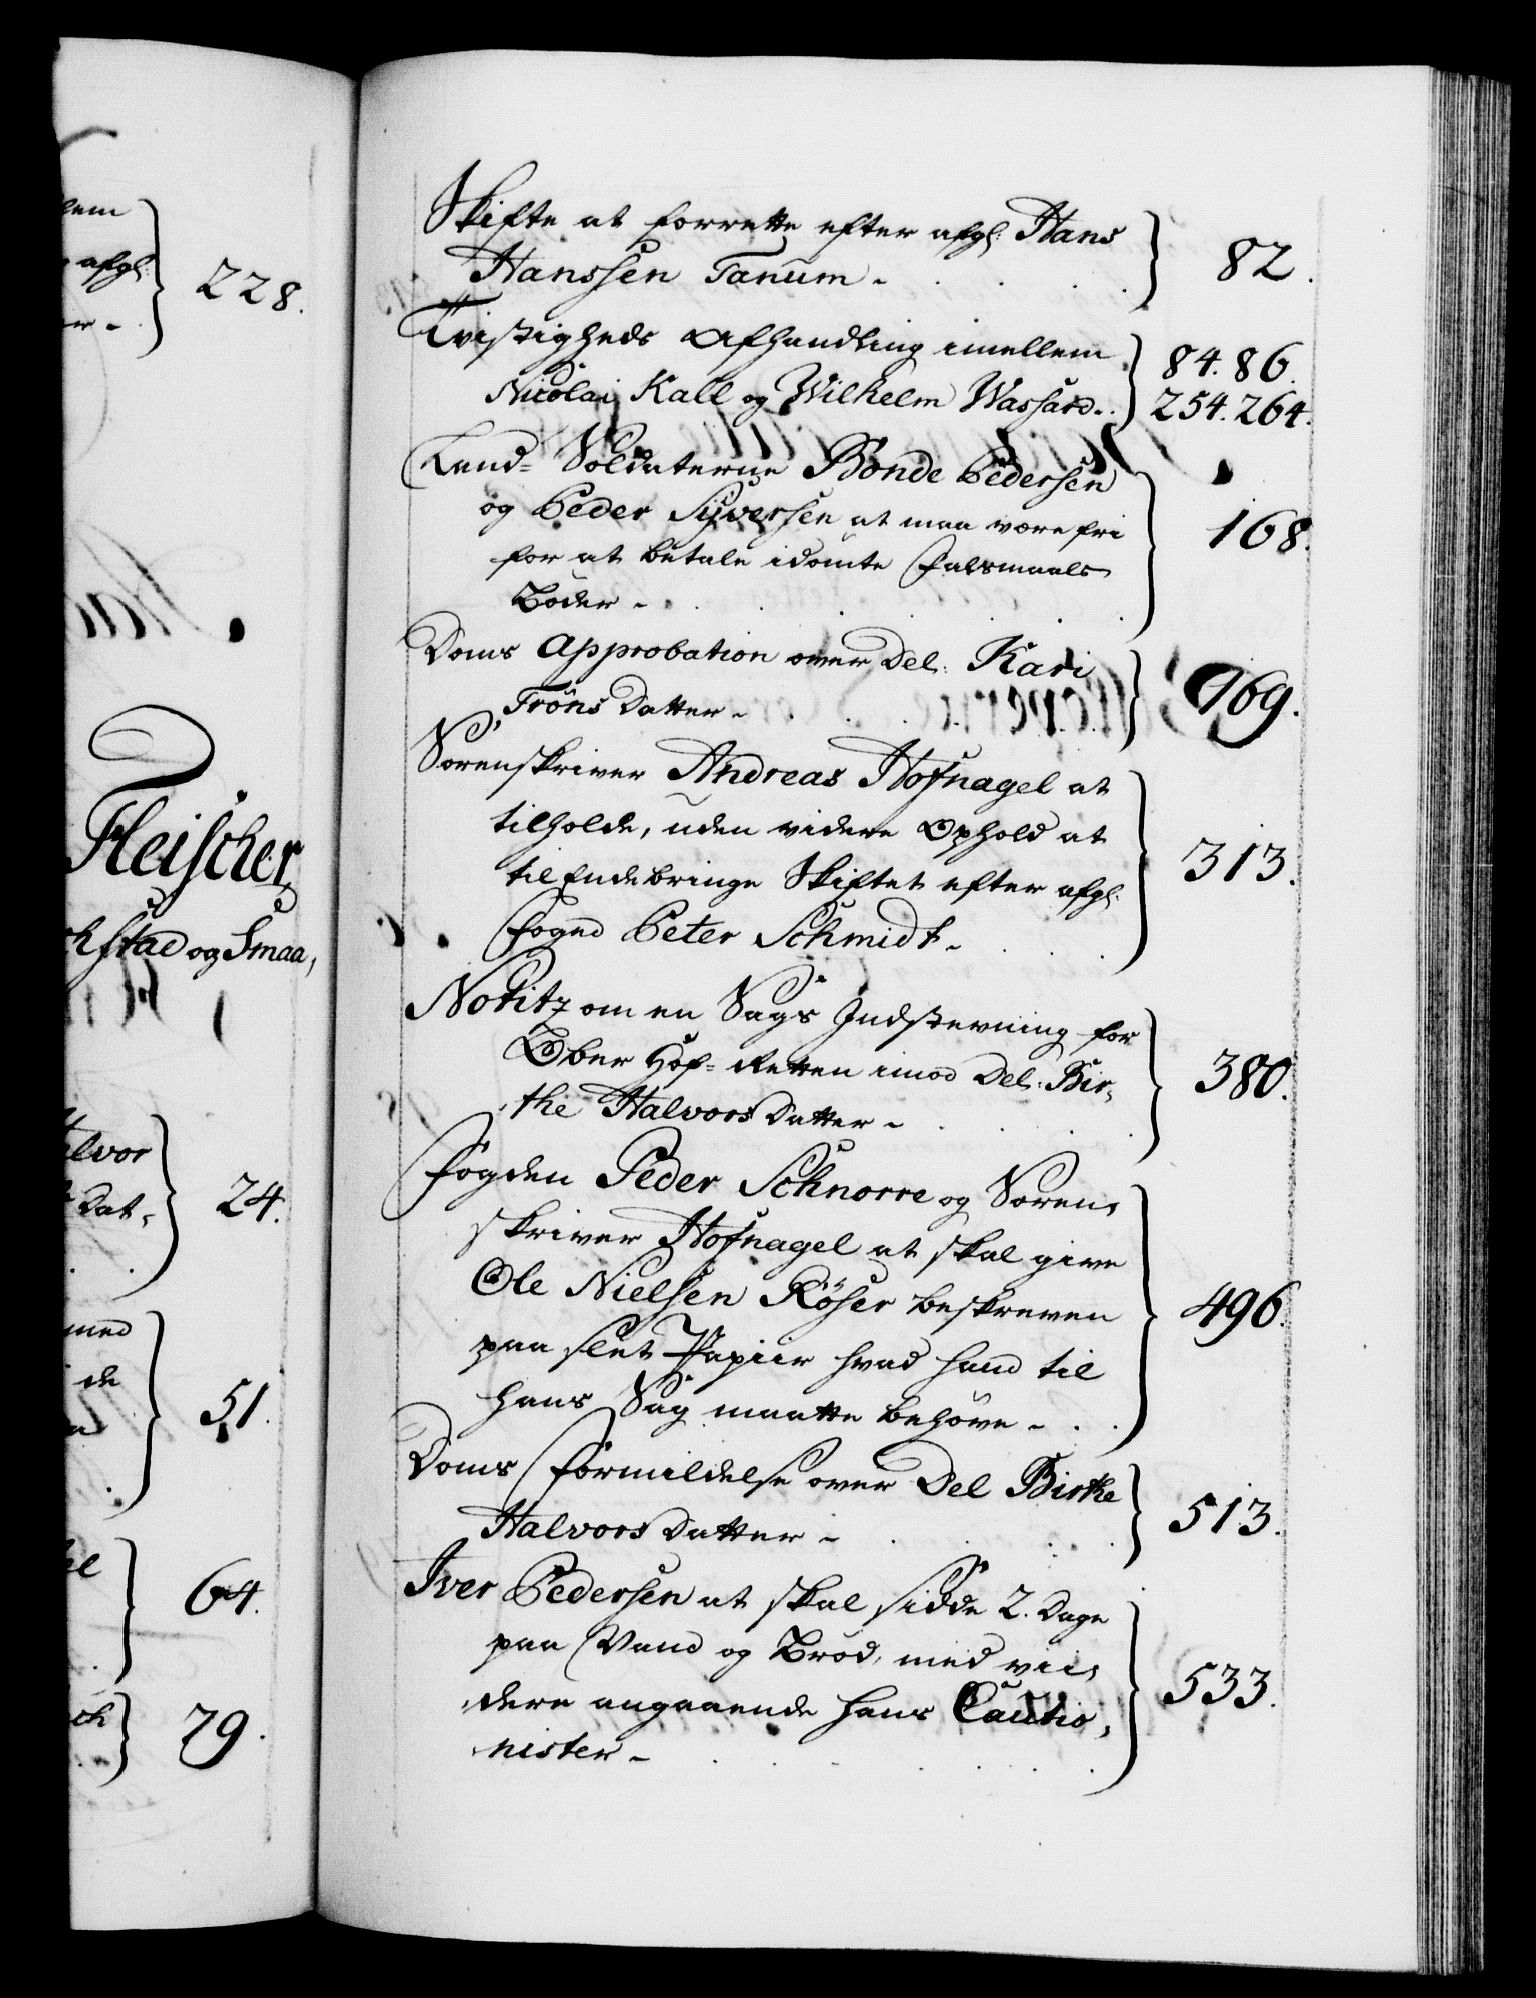 lem
afgl:
er -
228.
Fleischer
stad og Smaa,
Halvor
Dat,
24.
med
de
51.
64.
ch
79.
Skifte at forrette efter afgl: Hans
Hanssen Tanum - 82.
Tvistigheds Afhandling imellem
Nicolai Kall og Wilhelm Wassard. 84. 86. 254. 264.
Land= Soldaterne Bonde Pedersen
og Peder Syversen at maa være fri
for at betale idömte Falsmaals
Böder - 168.
Doms Approbation over Del: Kari
Tröns Datter - 169.
Sorenskriver Andreas Hofnagel at
tilholde, uden videre Ophold at
til Ende bringe Skiftet efter afgl:
Foged Peter Schmidt - 313.
Notitz om en Sags Indstevning for
Ober Hof= Retten imod Del: Bir,
the Halvors Datter - 380.
Fogden Peder Schnorre og Soren,
skriver Hofnagel at skal give
Ole Nielsen Röser beskreven
paa slet Papiir hvad hand til
hans Sag maatte behöve - 496.
Doms Formildelse over Del Birthe
Halvors Datter - 513.
Iver Pedersen at skal sidde 2. Dage
paa Vand og Bröd, med vii,
dere angaaende hans Cautio,
nister - 533.